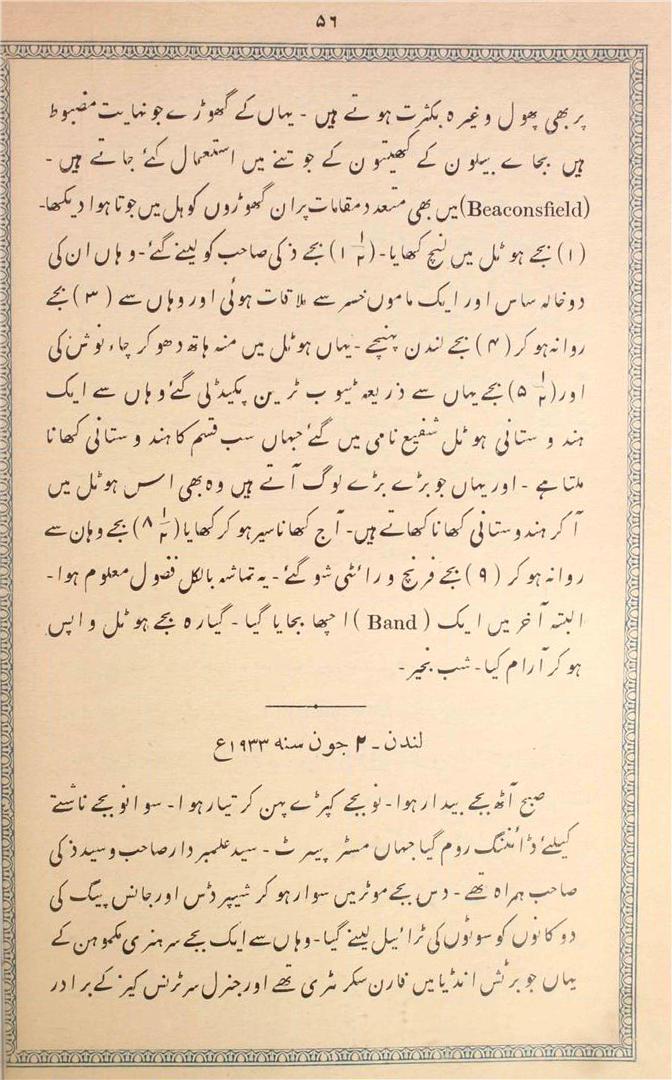 ۵۶
پر بھی پھول وغیرہ بکثرت ہوتے ہیں - یہاں کے گھوڑے جو نہایت مضبوط
ہیں بجاے بیلون کے کھیتون کے جوتنے میں استعمال کئے جاتے ہیں -
(Beaconsfield) میں بھی متعدد مقامات پر ان گھوڑوں کو ہل میں جوتا ہوا دیکھا-
(۱) بجے ہوٹل میں لنچ کھایا- (۱ ۱/۲) بجے ذکی صاحب کو لینے گئے- وہاں ان کی
دو خالہ ساس اور ایک ماموں خسر سے ملاقات ہوئی اور وہاں سے (۳) بجے
روانہ ہو کر (۴) بجے لندن پہنچے - یہاں ہوٹل میں منہ ہاتھ دھو کر چاء نوش کی
اور (۵ ۱/۲) بجے یہاں سے ذریعہ ٹیوب ٹرین پکیڈلی گئے وہاں سے ایک
ہندوستانی ہوٹل شفیع نامی میں گئے جہاں سب قسم کا ہندوستانی کھانا
ملتا ہے - اور یہاں جو بڑے بڑے لوگ آتے ہیں وہ بھی اس ہوٹل میں
آکر ہندوستانی کھانا کھاتے ہیں- آج کھانا سیر ہو کر کھایا (۸ ۱/۲) بجے وہاں سے
روانہ ہو کر (۹) بجے فرنچ ورائٹی شو گئے - یہ تماشہ بالکل فضول معلوم ہوا-
البتہ آخر میں ایک (Band) اچھا بجایا گیا - گیارہ بجے ہوٹل واپس
ہو کر آرام کیا- شب بخیر -
لندن - ۲ جون سنہ ۱۹۳۳ع
صبح آٹھ بجے بیدار ہوا- نو بجے کپڑے پہن کر تیار ہوا- سوا نو بجے ناشتے
کیلئے ڈائننگ روم گیا جہاں مسٹر پیرٹ - سید علمبردار صاحب و سید ذکی
صاحب ہمراہ تھے - دس بجے موٹر میں سوار ہو کر شیپرڈس اور جانس پیگ کی
دوکانوں کو سوٹوں کی ٹرائیل لینے گیا- وہاں سے ایک بجے سر ہنری مکموہن کے
یہاں جو برٹش انڈیا میں فارن سکرٹری تھے اور جنرل سر ٹرنس کیز کے برادر